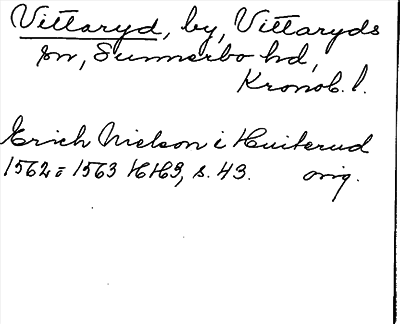 Vittaryd, by, Vittaryds
sn, Sunnerbo hd,
Kronob. l.
Erich Nielson i Huiterud
1562-1563 HH9, s. 43. orig.